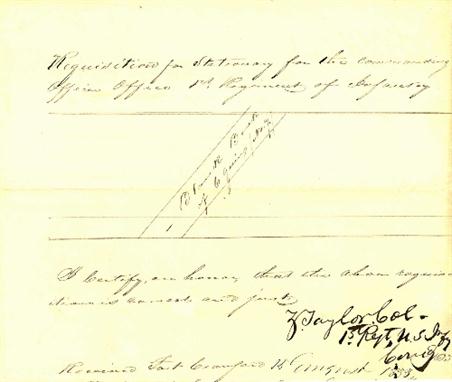 Requisition for Stationary for the commanding
Officer Office 1st Regiment of Infantry
1 Blank Book
of 6 quires
I Certify, on honor, that the above requisi
tion is correct and just
Z. Taylor. Col.
1st Regt. U.S. Infy
Comg
Received Fort Crawford